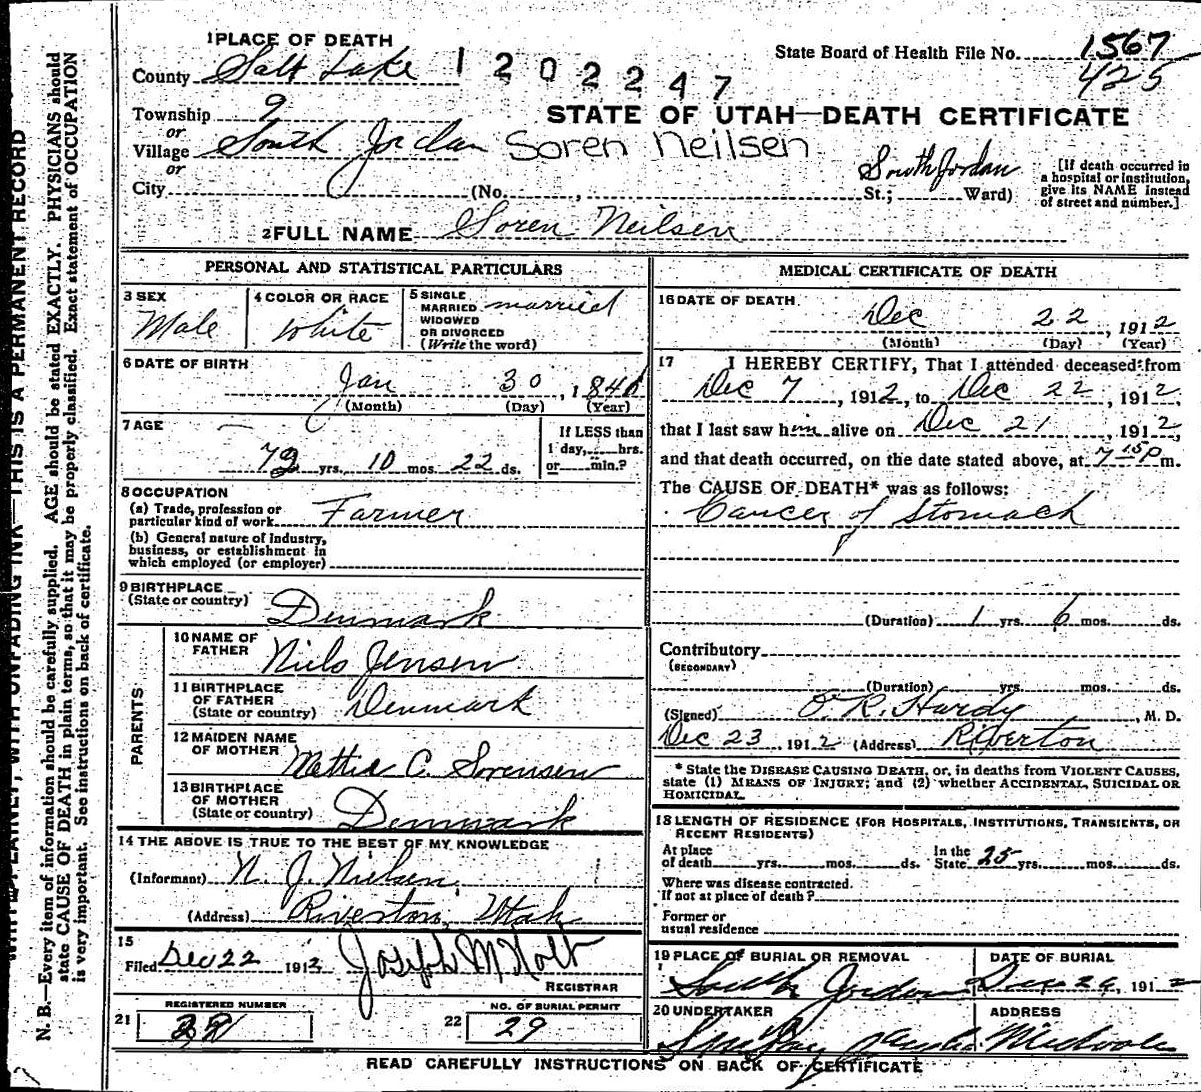 WRITE PLAINLY, WITH UNFADING INK—THIS IS A PERMANENT RECORD
N. B.—Every item of information should be carefully supplied. AGE should be stated EXACTLY. PHYSICIANS should
state CAUSE OF DEATH in plain terms, so that it may be properly classified. Exact statement of OCCUPATION
is very important. See instructions on back of certificate.
1 PLACE OF DEATH
State Board of Health File No. 1567
425
County Salt Lake 1202247
Township 9
STATE OF UTAH—DEATH CERTIFICATE
or
Village South Jordan Soren Neilsen
or
City (No. , South Jordan St.; Ward)
[If death occurred in
a hospital or institution,
give its NAME instead
of street and number.]
2 FULL NAME Soren Neilsen
PERSONAL AND STATISTICAL PARTICULARS
3 SEX
Male
4 COLOR OR RACE
White
5 SINGLE
MARRIED
WIDOWED
OR DIVORCED
(Write the word)
married
6 DATE OF BIRTH
Jan 30, 1840
(Month) (Day) (Year)
7 AGE
72 yrs. 10 mos. 22 ds.
If LESS than
1 day, hrs.
or min.?
8 OCCUPATION
(a) Trade, profession or
particular kind of work Farmer
(b) General nature of industry,
business, or establishment in
which employed (or employer)
9 BIRTHPLACE
(State or country) Denmark
PARENTS
10 NAME OF
FATHER Niels Jensen
11 BIRTHPLACE
OF FATHER
(State or country) Denmark
12 MAIDEN NAME
OF MOTHER Mettie C. Sorensen
13 BIRTHPLACE
OF MOTHER
(State or country) Denmark
14 THE ABOVE IS TRUE TO THE BEST OF MY KNOWLEDGE
(Informant) N. J. Nielsen
(Address) Riverton, Utah
15
Filed Dec 22 1912 Joseph M Holt
REGISTRAR
REGISTERED NUMBER
21
NO. OF BURIAL PERMIT
22 29
MEDICAL CERTIFICATE OF DEATH
16 DATE OF DEATH
Dec 22, 1912
(Month) (Day) (Year)
17 I HEREBY CERTIFY, That I attended deceased from
Dec 7, 1912, to Dec 22, 1912,
that I last saw him alive on Dec 21, 1912,
and that death occurred, on the date stated above, at 7 15 P m.
The CAUSE OF DEATH* was as follows:
Cancer of Stomach
(Duration) 1 yrs. 6 mos. ds.
Contributory
(SECONDARY)
(Duration) yrs. mos. ds.
(Signed) O. R. Hardy, M. D.
Dec 23, 1912 (Address) Riverton
* State the DISEASE CAUSING DEATH, or, in deaths from VIOLENT CAUSES,
state (1) MEANS OF INJURY; and (2) whether ACCIDENTAL, SUICIDAL OR
HOMICIDAL.
18 LENGTH OF RESIDENCE (FOR HOSPITALS, INSTITUTIONS, TRANSIENTS, OR
RECENT RESIDENTS)
At place
of death yrs. mos. ds.
In the
State 25 yrs. mos. ds.
Where was disease contracted.
If not at place of death?
Former or
usual residence
19 PLACE OF BURIAL OR REMOVAL
South Jordan
DATE OF BURIAL
Dec 24, 1912
20 UNDERTAKER
ADDRESS
Midvale
READ CAREFULLY INSTRUCTIONS ON BACK OF CERTIFICATE